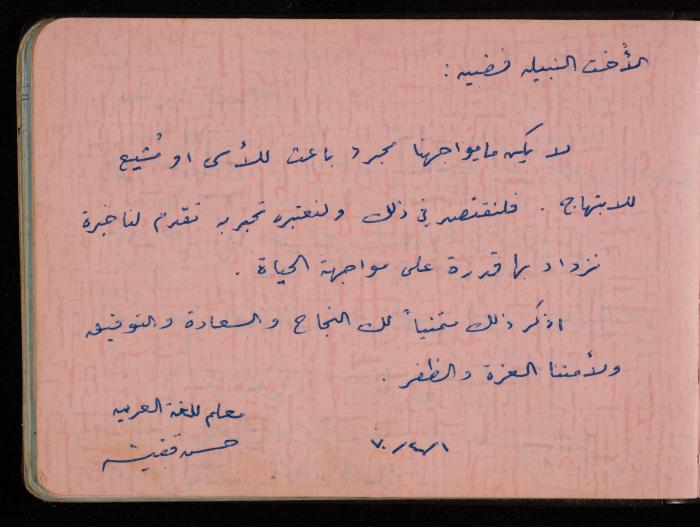 الأُخت النبيله فضيه :
لا يكن ما يواجهنا مجرد باعث للأسى او مُشيع
للابتهاج . فلنقتصد في ذلك ولنعتبره تجربه تقدم لنا خبرة
نزداد بها قدرة على مواجهة الحياة .
اذكر ذلك متمنياً لك النجاح والسعادة والتوفيق
ولأمتنا العزة والظفر .
معلم للغة العربيه
حسن